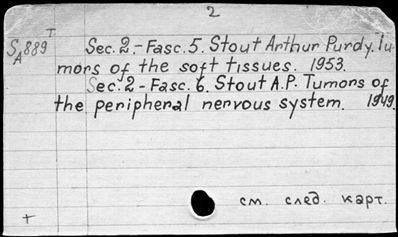 2
T
SA889 Sec.2.-Fasc.5. Stout Arthur Purdy. Tu
mors of the soft tissues. 1953.
Sec.2-Fasc.6. Stout A.P. Tumors of
the peripheral nervous system. 1949.
см. след. карт.
+